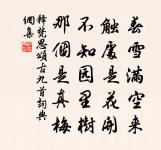 春雪满空来
触处是花开
不知园里树
那个是真梅
释梵思颂古九首词典
网集